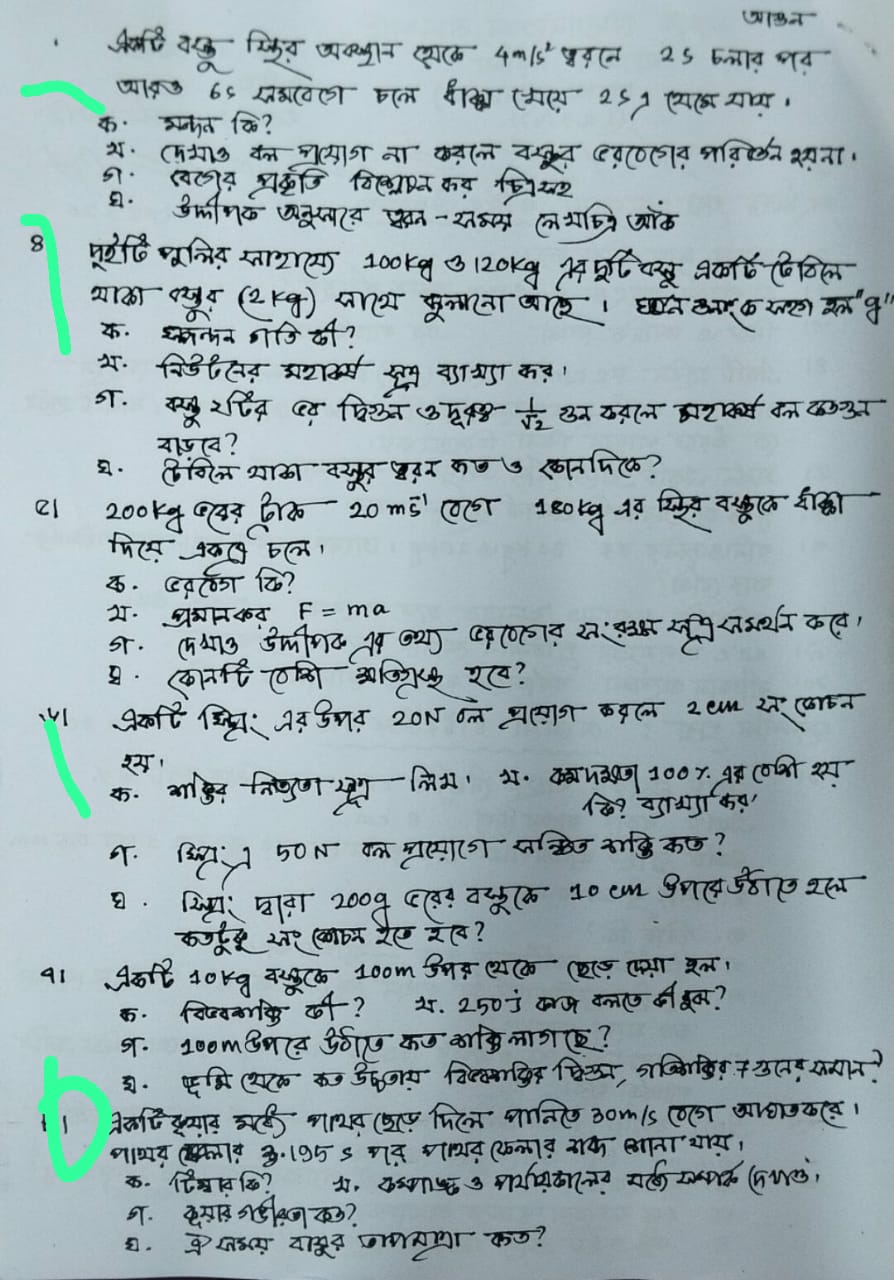 আগুন
একটি বস্তু স্থির অবস্থান থেকে 4m/s² ত্বরনে 2s চলার পর
আরও 6s সমবেগে চলে ধাক্কা খেয়ে 2s এ থেমে যায়।
ক. মন্দন কি?
খ. দেখাও বল প্রয়োগ না করলে বস্তুর ভরবেগের পরিবর্তন হয়না।
গ. বেগের প্রকৃতি বিশ্লেষন কর চিত্রসহ
ঘ. উদ্দীপক অনুসারে ত্বরন-সময় লেখচিত্র আঁক
৪ দুইটি পুলির সাহায্যে 100kg ও 120kg এর দুটি বস্তু একটি টেবিলে
থাকা বস্তুর (2kg) সাথে ঝুলানো আছে। ঘর্ষন গুনাংক "g"
ক. স্পন্দন গতি কী?
খ. নিউটনের মহাকর্ষ সূত্র ব্যাখ্যা কর।
গ. বস্তু ২টির ভর দ্বিগুন ও দূরত্ব 1/√2 গুন করলে মহাকর্ষ বল কতগুন
বাড়বে?
ঘ. টেবিলে থাকা বস্তুর ত্বরন কত ও কোনদিকে?
৫। 200kg ভরের ট্রাক 20 ms⁻¹ বেগে 180kg এর স্থির বস্তুকে ধাক্কা
দিয়ে একত্রে চলে।
ক. ভরবেগ কি?
খ. প্রমানকর F = ma
গ. দেখাও উদ্দীপক এর তথ্য ভরবেগের সংরক্ষন সূত্র সমর্থন করে।
ঘ. কোনটি বেশি ক্ষতিগ্রস্থ হবে?
৬। একটি স্প্রিং এর উপর 20N বল প্রয়োগ করলে 2cm সংকোচন
হয়।
ক. শক্তির নিত্যতা সূত্র লিখ। খ. কর্মদক্ষতা 100% এর বেশি হয়
কি? ব্যাখ্যা কর।
গ. স্প্রিং এ 50N বল প্রয়োগে সঞ্চিত শক্তি কত?
ঘ. স্প্রিং দ্বারা 200g ভরের বস্তুকে 10 cm উপরে উঠাতে হলে
কতটুকু সংকোচন হতে হবে?
৭। একটি 10kg বস্তুকে 100m উপর থেকে ছেড়ে দেয়া হল।
ক. বিভবশক্তি কী? খ. 250J কাজ বলতে কী বুঝ?
গ. 100m উপরে উঠাতে কত শক্তি লাগছে?
ঘ. ভূমি থেকে কত উচ্চতায় বিভবশক্তির দ্বিগুন, গতিশক্তির 7 গুনের সমান?
৮। একটি কুয়ার মধ্যে পাথর ছেড়ে দিলে পানিতে 30m/s বেগে আঘাতকরে।
পাথর ফেলার 3.195 s পর পাথর ফেলার শব্দ শোনা যায়।
ক. টিম্বার কি? খ. কম্পাঙ্ক ও পর্যায়কালের মধ্যে সম্পর্ক দেখাও।
গ. কুয়ার গভীরতা কত?
ঘ. ঐ সময়ে বায়ুর তাপমাত্রা কত?